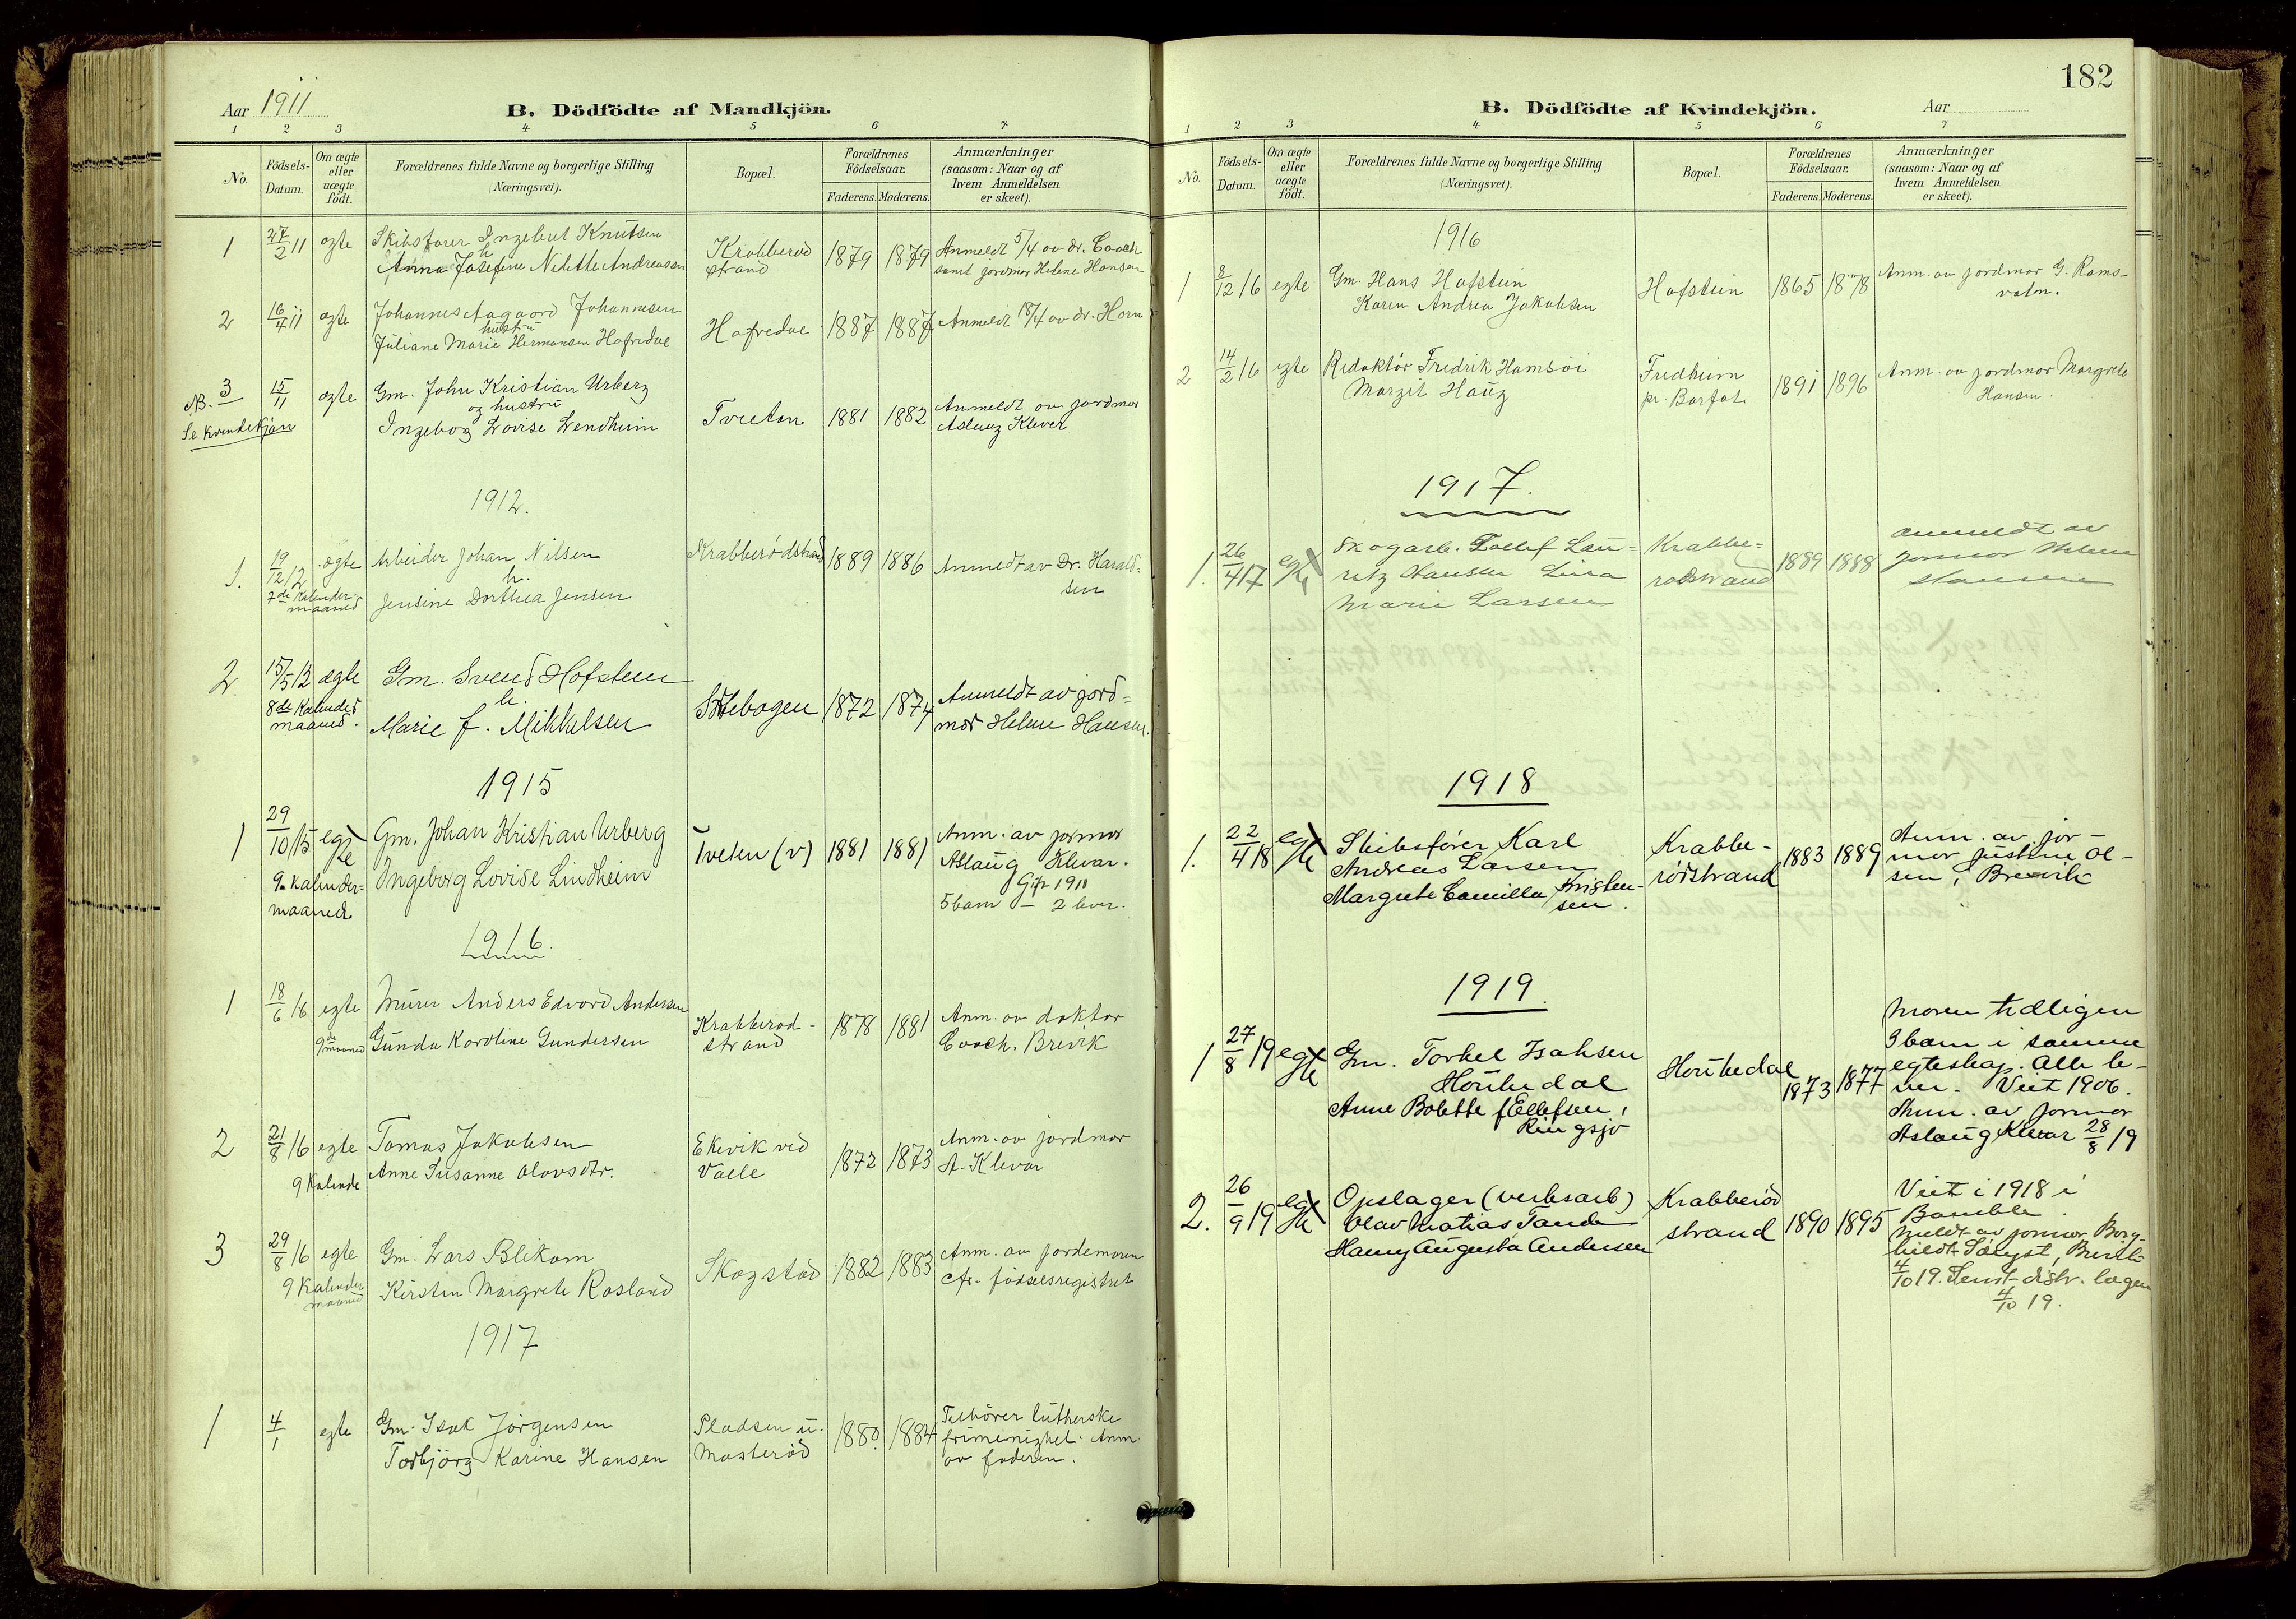 Aar 1911
B. Dödfödte af Mandkjön.
1 2 3 4 5 6 7
No.
Födsels-Datum.
Om ægte eller uægte födt.
Forældrenes fulde Navne og borgerlige Stilling (Næringsvei).
Bopæl.
Forældrenes Födselsaar.
Faderens. Moderens.
Anmærkninger (saasom: Naar og af hvem Anmeldelsen er skeet).
1 27/2 11 ægte Skibsfører Ingebret Knutsen
h
Anna Josefine Nilette Andreasen
Krabberød
strand
1879 1879
Anmeldt 5/4 av dr. Cooch
samt jordmor Helene Hansen
2 16/4 11 ægte Johannes Aagaard Johannesen
hustru
Juliane Marie Hermansen Hafredal
Hafredal 1887 1887 Anmeldt 18/4 av dr. Horn
NB. 3
Se kvindekjøn
15/11 ægte Gm. John Kristian Urberg
og hustru
Ingebog Lovise Lendheim
Tveten 1881 1882
Anmeldt av jordmor
Aslaug Klever
1912.
1. 19/12 12 ægte Arbeider Johan Nilsen
7de Kalender-
maaned
h.
Jensine Dorthea Jensen
Krabberødstrand 1889 1886 Anmeldt av Dr. Harald-
sen
2. 15/5 12 ægte Gm. Svend Hofsteen
8de Kalender
maaned.
h.
Marie f. Mikkelsen
Stebogen 1872 1874
Anmeldt av jord-
mor Helene Hansen.
1915
1 29/10 15 egte Gm. Johan Kristian Urberg
9. Kalender-
maaned
Ingeborg Lovise Lindheim
Tveten (v) 1881 1881
Anm. av jormor
Aslaug Klevar.
Gift 1911
5 barn – 2 lever.
1916.
1 18/6 16 egte Murer Anders Edvard Andersen
9de maaned Gunda Karoline Gundersen
Krabberød-
strand
1878 1881
Anm. av doktor
Cooch. Brevik
2 21/8 16 egte Tomas Jakobsen
9 Kalende Anne Susanne Olavsdtr.
Ekevik ved
Valle
1872 1873
Anm. av jordmor
A. Klevar
3 29/8 16 egte Gm. Lars Blikom
9 Kalender
maaned
Kirsten Margrete Rosland
Skogstad 1882 1883
Anm. av jordemoren
cfr. fødselsregistret
1917
1 4/1 egte Gm. Isak Jörgensen
Torbjörg Karine Hansen
Pladsen u.
Masterød
1880. 1884
Tilhörer lutherske
frimenighet. Anm.
av faderen.
182
B. Dödfödte af Kvindekjön.
Aar
1 2 3 4 5 6 7
No.
Födsels-Datum.
Om ægte eller uægte födt.
Forældrenes fulde Navne og borgerlige Stilling (Næringsvei).
Bopæl.
Forældrenes Födselsaar.
Faderens. Moderens.
Anmærkninger (saasom: Naar og af hvem Anmeldelsen er skeet).
1916
1 8/12 16 egte Gm. Hans Hafstein
Karen Andrea Jakobsen
Hafstein 1865 1878
Anm. av jordmor G. Rams-
vatn.
2 14/2 16 egte Redaktør Fredrik Hamsöi
Margit Haug
Fredheim
pr. Barfot
1891 1896
Anm. av jordmor Margrete
Hansen.
1917.
1. 26/4 17 egte Skogarb. Tollef Lau-
ritz Hansen Lina
Marie Larsen
Krabbe-
rødstrand
1889 1888
anmeldt av
jormor Helene
Hansen
1918
1. 22/4 18 egte Skibsfører Karl
Andreas Larsen
Margrete Camilla Kristen-
sen.
Krabbe-
rødstrand
1883 1889
Anm. av jor-
mor Justine Ol-
sen, Brevik
1919.
1 27/8 19 egte Gm. Torkel Isaksen
Hourkedal
Anne Bolette f. Ellefsen,
Ringsjö
Hourkedal 1873 1877
Moren tidligere
9 barn i samme
egteskap. Alle le-
ver. Viet 1906.
Anm. av jormor
Aslaug Klevar 28/8 19
2. 26/9 19 egte Opslager (verksarb)
Olav Matias Tande
Hanny Augusta Andersen
Krabberød
strand
1890 1895
Viet i 1918 i
Bamble.
Meldt av jormor Borg-
hildt , Brevik
4/10 19. Sendt distr. lægen
4/10 19.